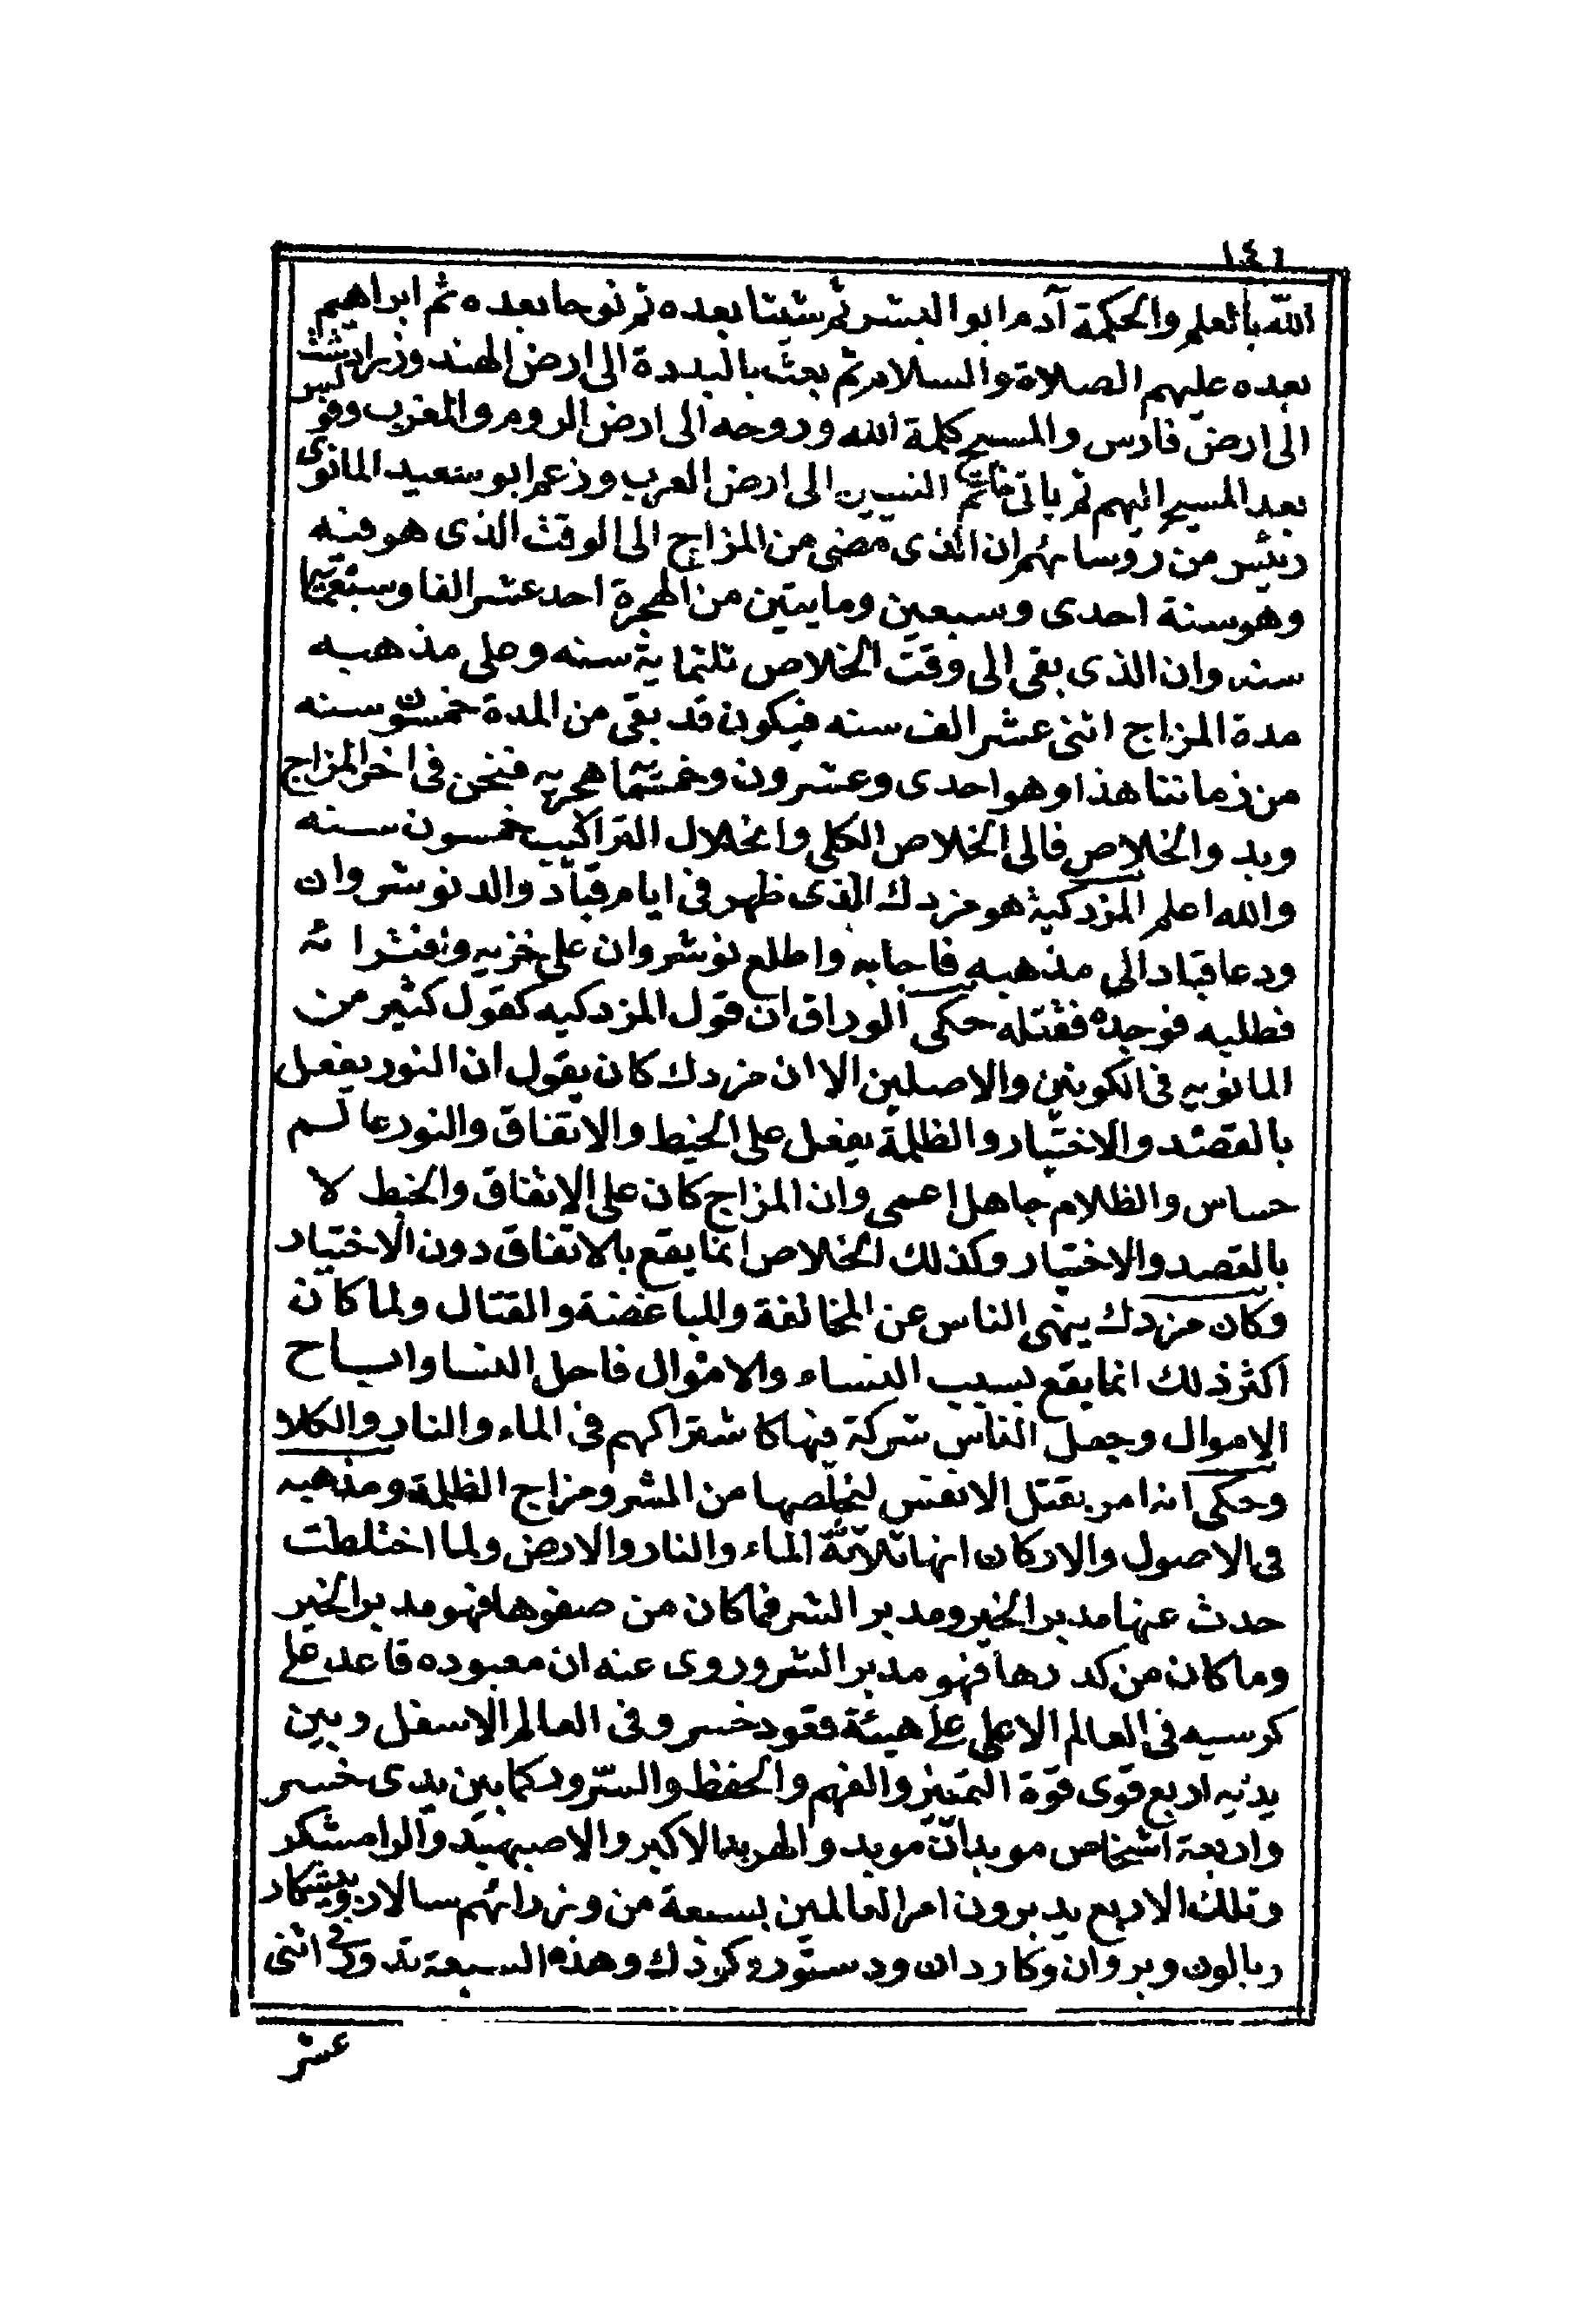 ١٤٦
الله بالعلم والحكمة آدم ابو البشر ثم شيثا بعده ثم نوحا بعده ثم ابراهيم
بعده عليهم الصلاة والسلام ثم بعث بالبددة الى ارض الهند وزرادشت
الى ارض فارس والمسيح كلمة الله وروحه الى ارض الروم والمغرب وفولس
بعد المسيح اليهم ثم ياتى خاتم النبيين الى ارض العرب وزعم ابو سعيد المانوى
رئيس من روسائهم ان الذى مضى من المزاج الى الوقت الذى هو فيه
وهو سنة احدى وسبعين ومايتين من الهجرة احد عشر الفا وسبعماية
سنه وان الذى بقى الى وقت الخلاص ثلثماية سنه وعلى مذهبه
مدة المزاج اثنى عشر الف سنه فيكون قد بقى من المدة خمسون سنه
من زماننا هذا وهو احدى وعشرون وخمسماية هجريه فنحن فى اخر المزاج
وبد والخلاص فالى الخلاص الكلى وانحلال التراكيب خمسون سنه
والله اعلم المزدكية هو مزدك الذى ظهر فى ايام قباد والد نوشروان
ودعا قباد الى مذهبه فاجابه واطلع نوشروان على خزيه وافترائه
فطلبه فوجده فقتله حكى الوراق ان قول المزدكيه كقول كثير من
المانويه فى الكونين والاصلين الا ان مزدك كان يقول ان النور يفعل
بالقصد والاختيار والظلمة يفعل على الخبط والاتفاق والنور عالم
حساس والظلام جاهل اعمى وان المزاج كان على الاتفاق والخبط لا
بالقصد والاختيار وكذلك الخلاص انما يقع بالاتفاق دون الاختيار
وكان مزدك ينهى الناس عن المخالفة والمباغضة والقتال ولما كان
اكثر ذلك انما يقع بسبب النساء والاموال فاحل النسا واباح
الاموال وجعل الناس شركة فيها كاشتراكهم فى الماء والنار والكلاء
وحكى انه امر بقتل الانفس ليخلصها من الشر ومزاج الظلمة ومذهبه
فى الاصول والاركان انها ثلاثة الماء والنار والارض ولما اختلطت
حدث عنها مدبر الخير ومدبر الشر فما كان من صفوها فهو مدبر الخير
وما كان من كدرها فهو مدبر الشر وروى عنه ان معبوده قاعد على
كرسيه فى العالم الاعلى على هيئة قعود خسرو فى العالم الاسفل وبين
يديه اربع قوى قوة التميز والفهم والحفظ والسرور كما بين يدى خسرو
واربعة اشخاص موبدان موبد والهربد الاكبر والاصبهبد والرامشكر
وتلك الاربع يدبرون امر العالمين بسبعة من وزرائهم سالار وبيشكار
وبالون وبروان وكاردان ودستور وكوذك وهذه السبعة تدور فى اثنى
عشر